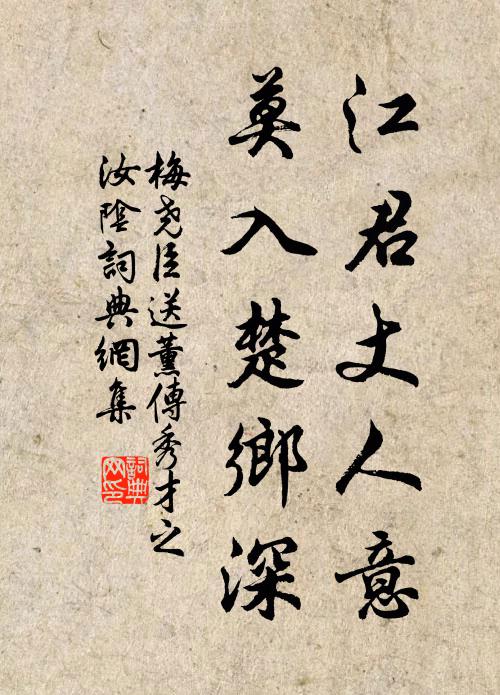 江君丈人意
莫入楚鄉深
梅堯臣送薰傳秀才之
汝陰詞典網集
詞典
网印